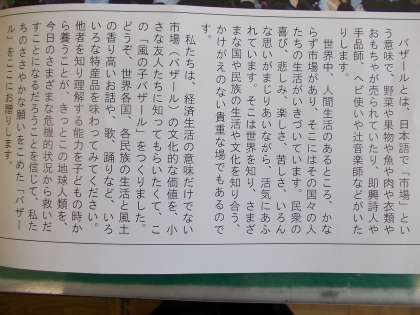 バザールとは、日本語で「市場」とい
う意味で、野菜や果物や魚や肉や衣類や
おもちゃが売られていたり、即興詩人や
手品師、ヘビ使いや辻音楽師などがいた
りします。
世界中、人間生活のあるところ、かな
らず市場があり、そこにはその国々の人
たちの生活がいきづいています。民衆の
喜び、悲しみ、楽しさ、苦しさ、いろん
な思いがまじりあいながら、活気にあふ
れています。そこは世界を知り、さまざ
まな国や民族の生活や文化を知り合う、
かけがえのない貴重な場でもあるので
す。
私たちは、経済生活の意味だけでない
市場(バザール)の文化的な価値を、小
さな友人たちに知ってもらいたくて、こ
の「風の子バザール」をつくりました。
どうぞ、世界各国、各民族の生活と風土
の香り高いお話や、歌、踊りなど、いろ
いろな特産品を味わってみてください。
他者を知り理解する能力を子どもの時か
ら養うことが、きっとこの地球人類を、
今日のさまざまな危機的状況から救いだ
すことになるだろうことを信じて、私た
ちのささやかな願いをこめた「バザー
ル」をここにお贈りします。